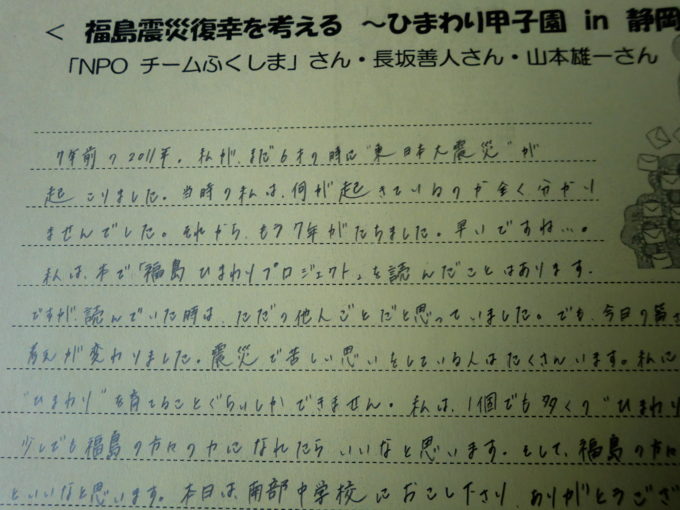 < 福島震災復幸を考える ～ひまわり甲子園 in 静岡
「NPO チームふくしま」さん・長坂善人さん・山本雄一さん
7年前の2011年。私が、まだ6才の時に"東日本大震災"が
起こりました。当時の私は、何が起きているのか全く分かり
ませんでした。それから、もう7年がたちました。早いですね…。
私は、本で「福島ひまわりプロジェクト」を読んだことはあります。
ですが、読んでいた時は、ただの他人ごとだと思っていました。でも、今日の
考えが変わりました。震災で苦しい思いをしている人はたくさんいます。私に
"ひまわり"を育てることぐらいしかできません。私は、1個でも多くの"ひまわり
少しでも福島の方々の力になれたらいいなと思います。そして、福島の方
といいなと思います。本日は、南部中学校におこし下さり、ありがとうござ